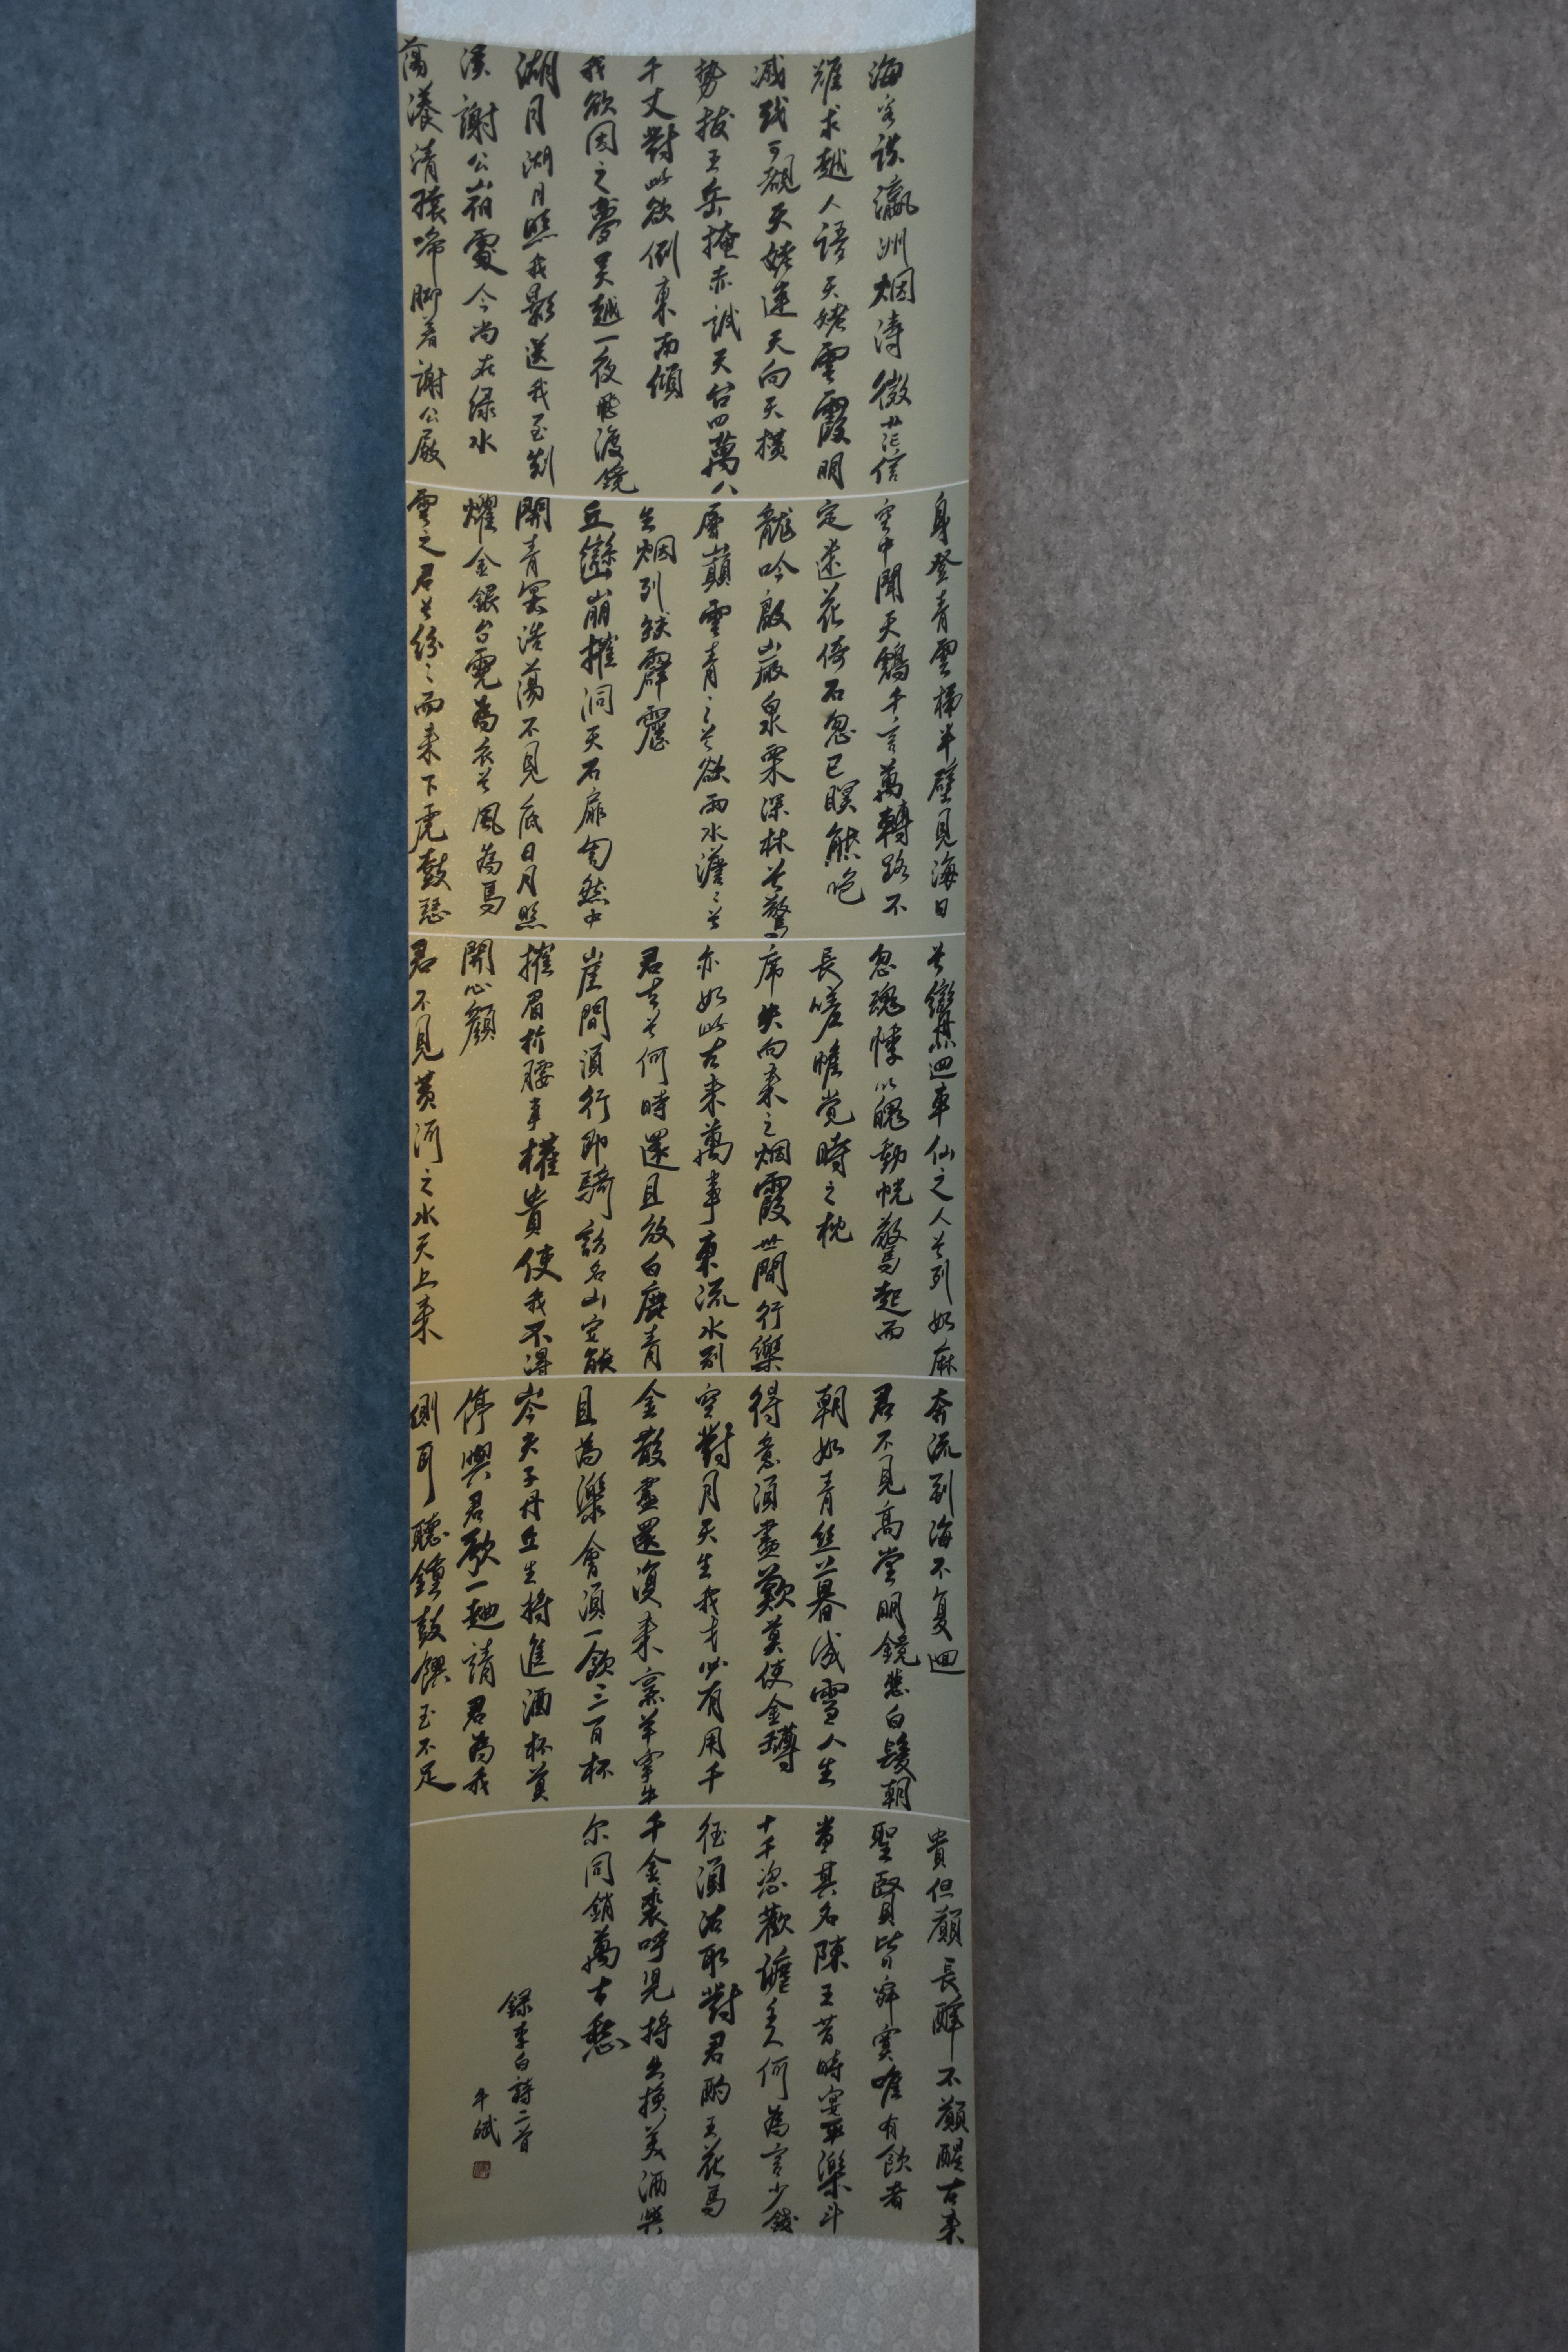 海客談瀛洲烟濤微茫信
難求越人語天姥雲霞明
滅或可覩天姥連天向天橫
勢拔五岳掩赤誠天台四萬八
千丈對此欲倒東南傾
我欲因之夢吳越一夜飛渡鏡
湖月湖月照我影送我至剡
溪謝公宿處今尚在綠水
蕩漾清猿啼脚着謝公屐
身登青雲梯半壁見海日
空中聞天鷄千言萬轉路不
定迷花倚石忽已暝熊咆
龍吟殷巖泉栗深林兮驚
層巔雲青々兮欲雨水澹々兮
生烟列缺霹靂
丘巒崩摧洞天石扉訇然中
開青冥浩蕩不見底日月照
耀金銀台霓為衣兮風為馬
雲之君兮紛々而来下虎鼓瑟
兮鸞迴車仙之人兮列如麻
忽魂悸以魄動恍驚起而
長嗟惟覺時之枕
席失向来之烟霞世間行樂
亦如此古来萬事東流水別
君去兮何時還且放白鹿青
崖間須行即騎訪名山安能
摧眉折腰事權貴使我不得
開心顏
君不見黃河之水天上来
奔流到海不复迴
君不見高堂明鏡悲白髮朝
朝如青絲暮成雪人生
得意須盡歡莫使金樽
空對月天生我才必有用千
金散盡還復来烹羊宰牛
且為樂會須一飲三百杯
岑夫子丹丘生將進酒杯莫
停與君歌一曲請君為我
側耳聽鐘鼓饌玉不足
貴但願長醉不願醒古来
聖賢皆寂寞唯有飲者
留其名陳王昔時宴平樂斗
十千恣歡謔主人何為言少錢
徑須沽取對君酌五花馬
千金裘呼兒將出換美酒與
尔同銷萬古愁
錄李白詩二首
斌